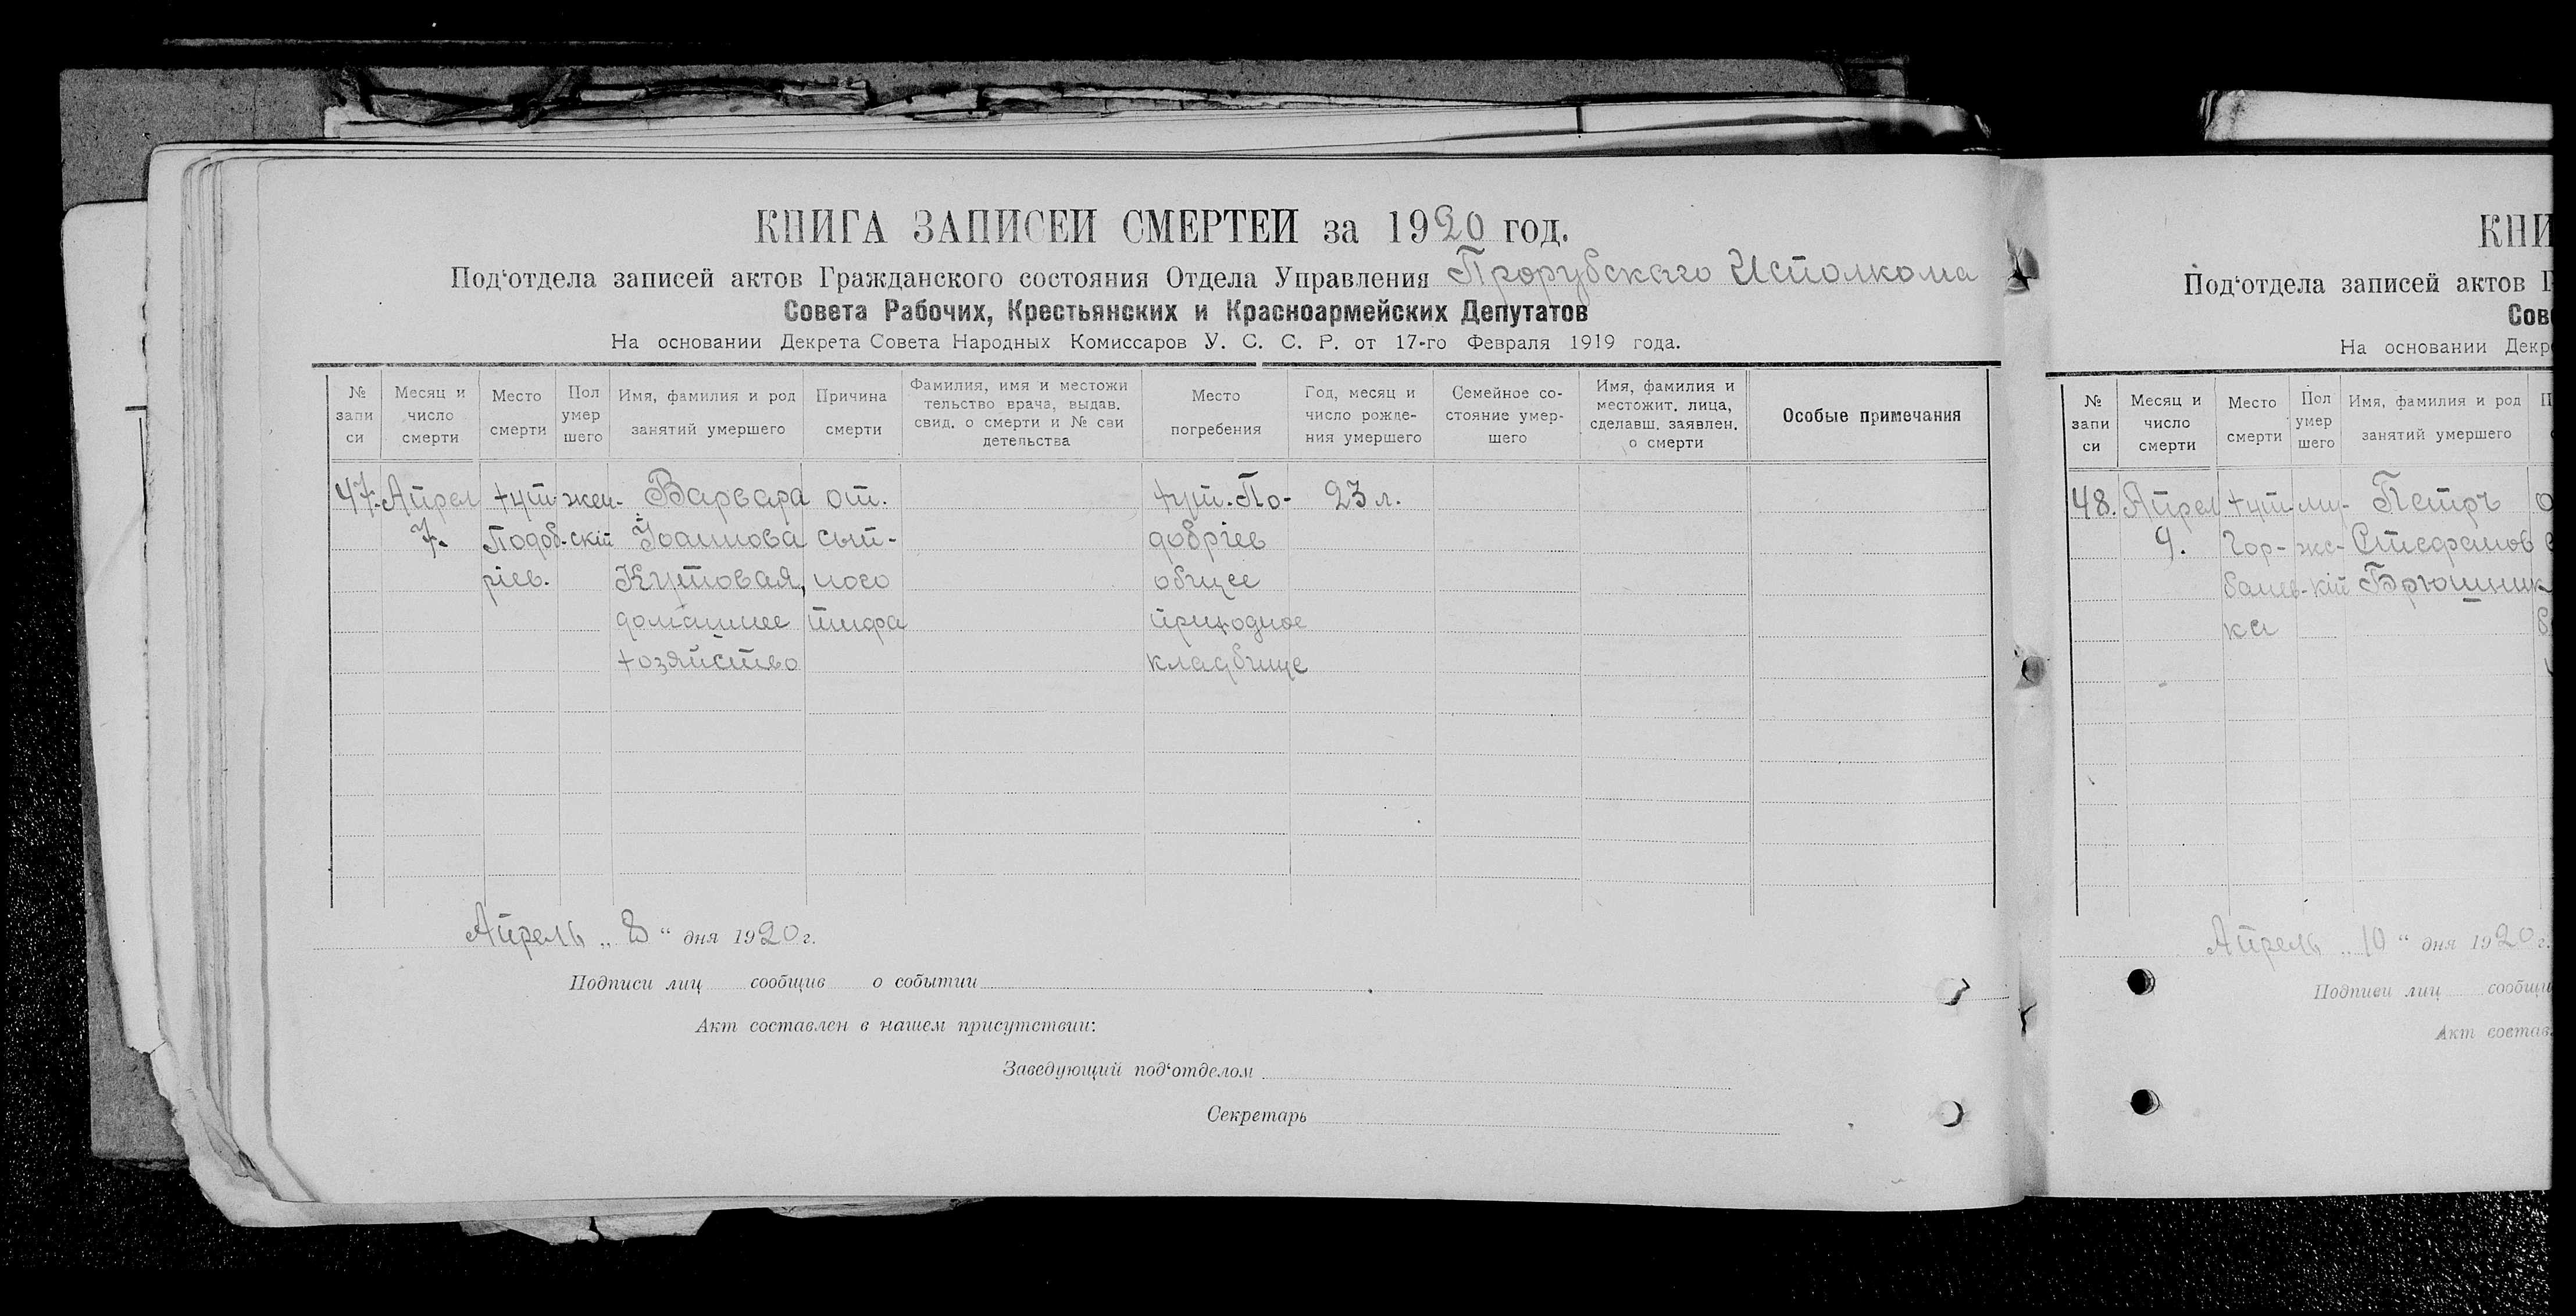 КНИГА ЗАПИСЕЙ СМЕРТЕЙ за 1920 год.
Под‘отдела записей актов Гражданского состояния Отдела Управления Прорубского Исполкома
Совета Рабочих, Крестьянских и Красноармейских Депутатов
На основании Декрета Совета Народных Комиссаров У. С. С. Р. от 17-го Февраля 1919 года.
№ запи си
Месяц и число смерти
Место смерти
Пол умер шего
Имя, фамилия и род занятий умершего
Причина смерти
Фамилия, имя и местожи тельство врача, выдав. свид. о смерти и № сви детельства
Место погребения
Год, месяц и число рожде- ния умершего
Семейное со- стояние умер- шего
Имя, фамилия и местожит. лица, сделавш. заявлен. о смерти
Особые примечания
47. Апрел хут. жен- Варвара от. хут. По- 23 л.
7. Подоб- скій Іоаннова сып- добріев
ріев. Кутовая, ного общее
домашнее тифа приходное
хозяйство кладбище
Апрель „ 8 “ дня 1920 г.
Подписи лиц сообщив о событии
Акт составлен в нашем присутствии:
Заведующий под‘отделом
Секретарь
КНИ
Под‘отдела записей актов Г
Сов
На основании Декр
№ запи си
Месяц и число смерти
Место смерти
Пол умер шего
Имя, фамилия и род занятий умершего
48. Апрел хут. му- Петръ
9. Гор- жс- Стефанов
банев- кій Брюшник
ка
Апрель „ 10 “ дня 1920 г.
Подписи лиц сообщи
Акт состав